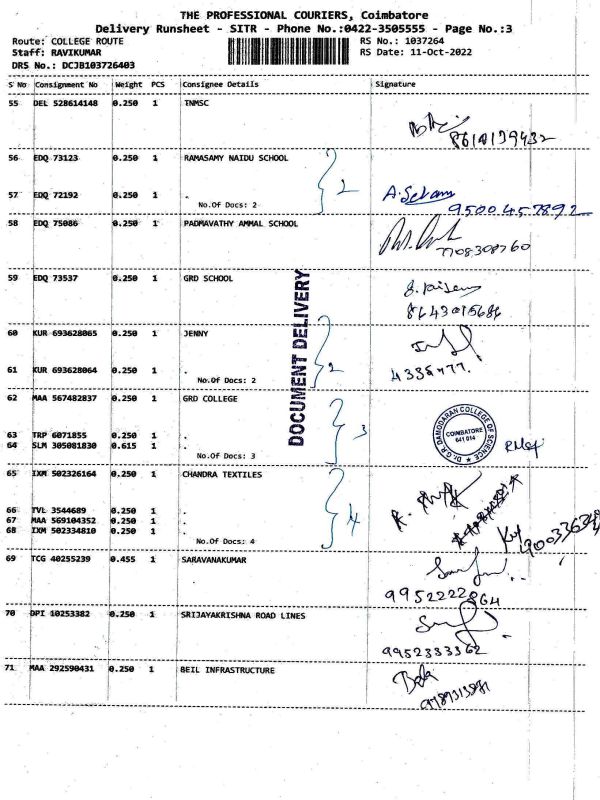 THE PROFESSIONAL COURIERS, Coimbatore
Delivery Runsheet - SITR - Phone No.:0422-3505555 - Page No.:3
Route: COLLEGE ROUTE RS No.: 1037264
Staff: RAVIKUMAR RS Date: 11-Oct-2022
DRS No.: DCJB103726403
S No Consignment No Weight PCS Consignee Details Signature
55 DEL 528614148 0.250 1 TNMSC
56 EDQ 73123 0.250 1 RAMASAMY NAIDU SCHOOL
2
57 EDQ 72192 0.250 1 . A. Selvam
No.Of Docs: 2 9500457892
58 EDQ 75086 0.250 1 PADMAVATHY AMMAL SCHOOL
7708308760
59 EDQ 73537 0.250 1 GRD SCHOOL
DOCUMENT DELIVERY
60 KUR 693628065 0.250 1 JENNY
2
61 KUR 693628064 0.250 1 .
No.Of Docs: 2
62 MAA 567482837 0.250 1 GRD COLLEGE
Dr. G.R. DAMODARAN COLLEGE OF SCIENCE
COIMBATORE
641 014
3
63 TRP 6071855 0.250 1 .
64 SLM 305081830 0.615 1 .
No.Of Docs: 3
65 IXM 502326164 0.250 1 CHANDRA TEXTILES
4
66 TVL 3544689 0.250 1 .
67 MAA 569104352 0.250 1 .
68 IXM 502334810 0.250 1 .
No.Of Docs: 4
69 TCG 40255239 0.455 1 SARAVANAKUMAR
9952222864
70 DPI 10253382 0.250 1 SRIJAYAKRISHNA ROAD LINES
9952333362
71 MAA 292590431 0.250 1 BEIL INFRASTRUCTURE